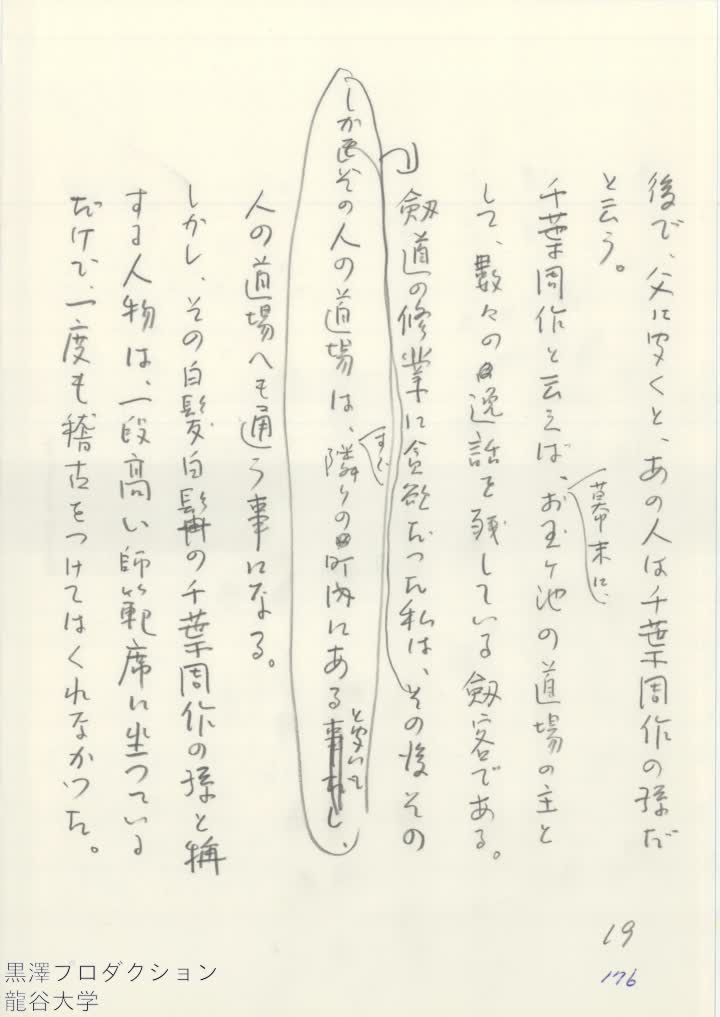 後で、父に聞くと、あの人は千葉周作の孫だ
と云う。
千葉周作と云えば、お玉ヶ池の道場の主と
幕末に、
して、数々の逸話を残している剱客である。
剱道の修業に貪欲だった私は、その後その
しかもその人の道場は、隣りの町内にある事だし、
すぐ
と聞いて
人の道場へも通う事になる。
しかし、その白髪白髯の千葉周作の孫と称
する人物は、一段高い師範席に坐っている
だけで、一度も稽古をつけてはくれなかった。
19
176
黒澤プロダクション
龍谷大学